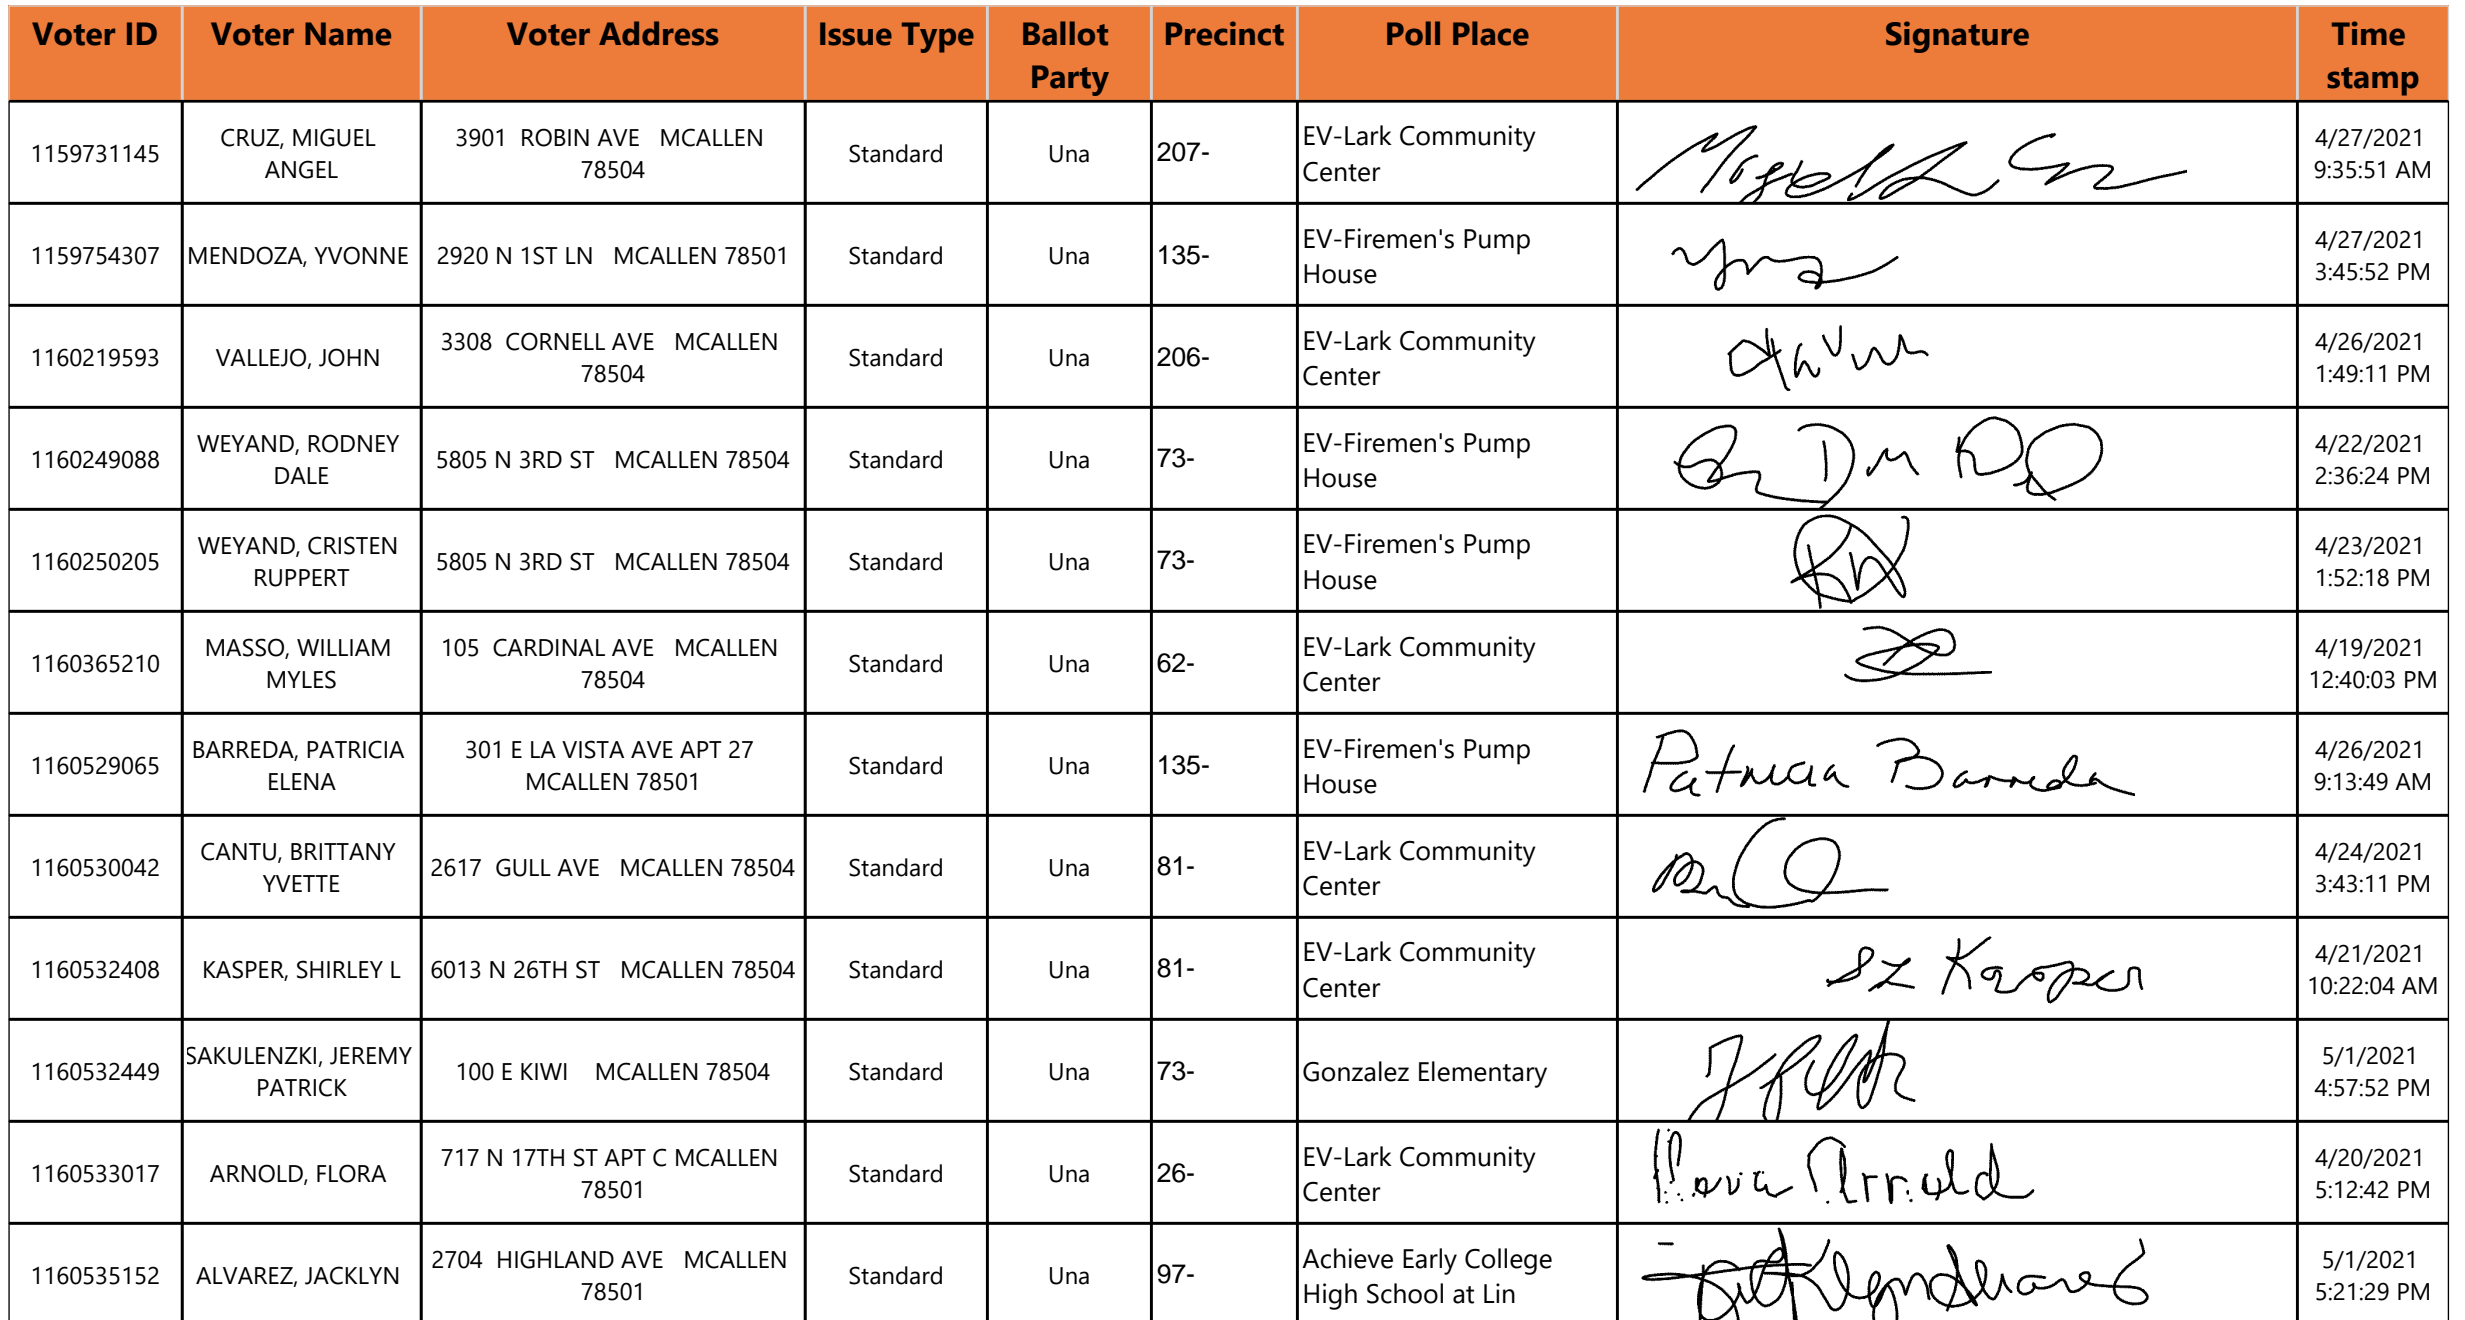 Voter ID Voter Name Voter Address Issue Type Ballot Party Precinct Poll Place Signature Time stamp
1159731145 CRUZ, MIGUEL ANGEL 3901 ROBIN AVE MCALLEN 78504 Standard Una 207- EV-Lark Community Center 4/27/2021 9:35:51 AM
1159754307 MENDOZA, YVONNE 2920 N 1ST LN MCALLEN 78501 Standard Una 135- EV-Firemen's Pump House 4/27/2021 3:45:52 PM
1160219593 VALLEJO, JOHN 3308 CORNELL AVE MCALLEN 78504 Standard Una 206- EV-Lark Community Center 4/26/2021 1:49:11 PM
1160249088 WEYAND, RODNEY DALE 5805 N 3RD ST MCALLEN 78504 Standard Una 73- EV-Firemen's Pump House 4/22/2021 2:36:24 PM
1160250205 WEYAND, CRISTEN RUPPERT 5805 N 3RD ST MCALLEN 78504 Standard Una 73- EV-Firemen's Pump House 4/23/2021 1:52:18 PM
1160365210 MASSO, WILLIAM MYLES 105 CARDINAL AVE MCALLEN 78504 Standard Una 62- EV-Lark Community Center 4/19/2021 12:40:03 PM
1160529065 BARREDA, PATRICIA ELENA 301 E LA VISTA AVE APT 27 MCALLEN 78501 Standard Una 135- EV-Firemen's Pump House Patricia Barreda 4/26/2021 9:13:49 AM
1160530042 CANTU, BRITTANY YVETTE 2617 GULL AVE MCALLEN 78504 Standard Una 81- EV-Lark Community Center 4/24/2021 3:43:11 PM
1160532408 KASPER, SHIRLEY L 6013 N 26TH ST MCALLEN 78504 Standard Una 81- EV-Lark Community Center SL Kasper 4/21/2021 10:22:04 AM
1160532449 SAKULENZKI, JEREMY PATRICK 100 E KIWI MCALLEN 78504 Standard Una 73- Gonzalez Elementary 5/1/2021 4:57:52 PM
1160533017 ARNOLD, FLORA 717 N 17TH ST APT C MCALLEN 78501 Standard Una 26- EV-Lark Community Center Flora Arnold 4/20/2021 5:12:42 PM
1160535152 ALVAREZ, JACKLYN 2704 HIGHLAND AVE MCALLEN 78501 Standard Una 97- Achieve Early College High School at Lin 5/1/2021 5:21:29 PM